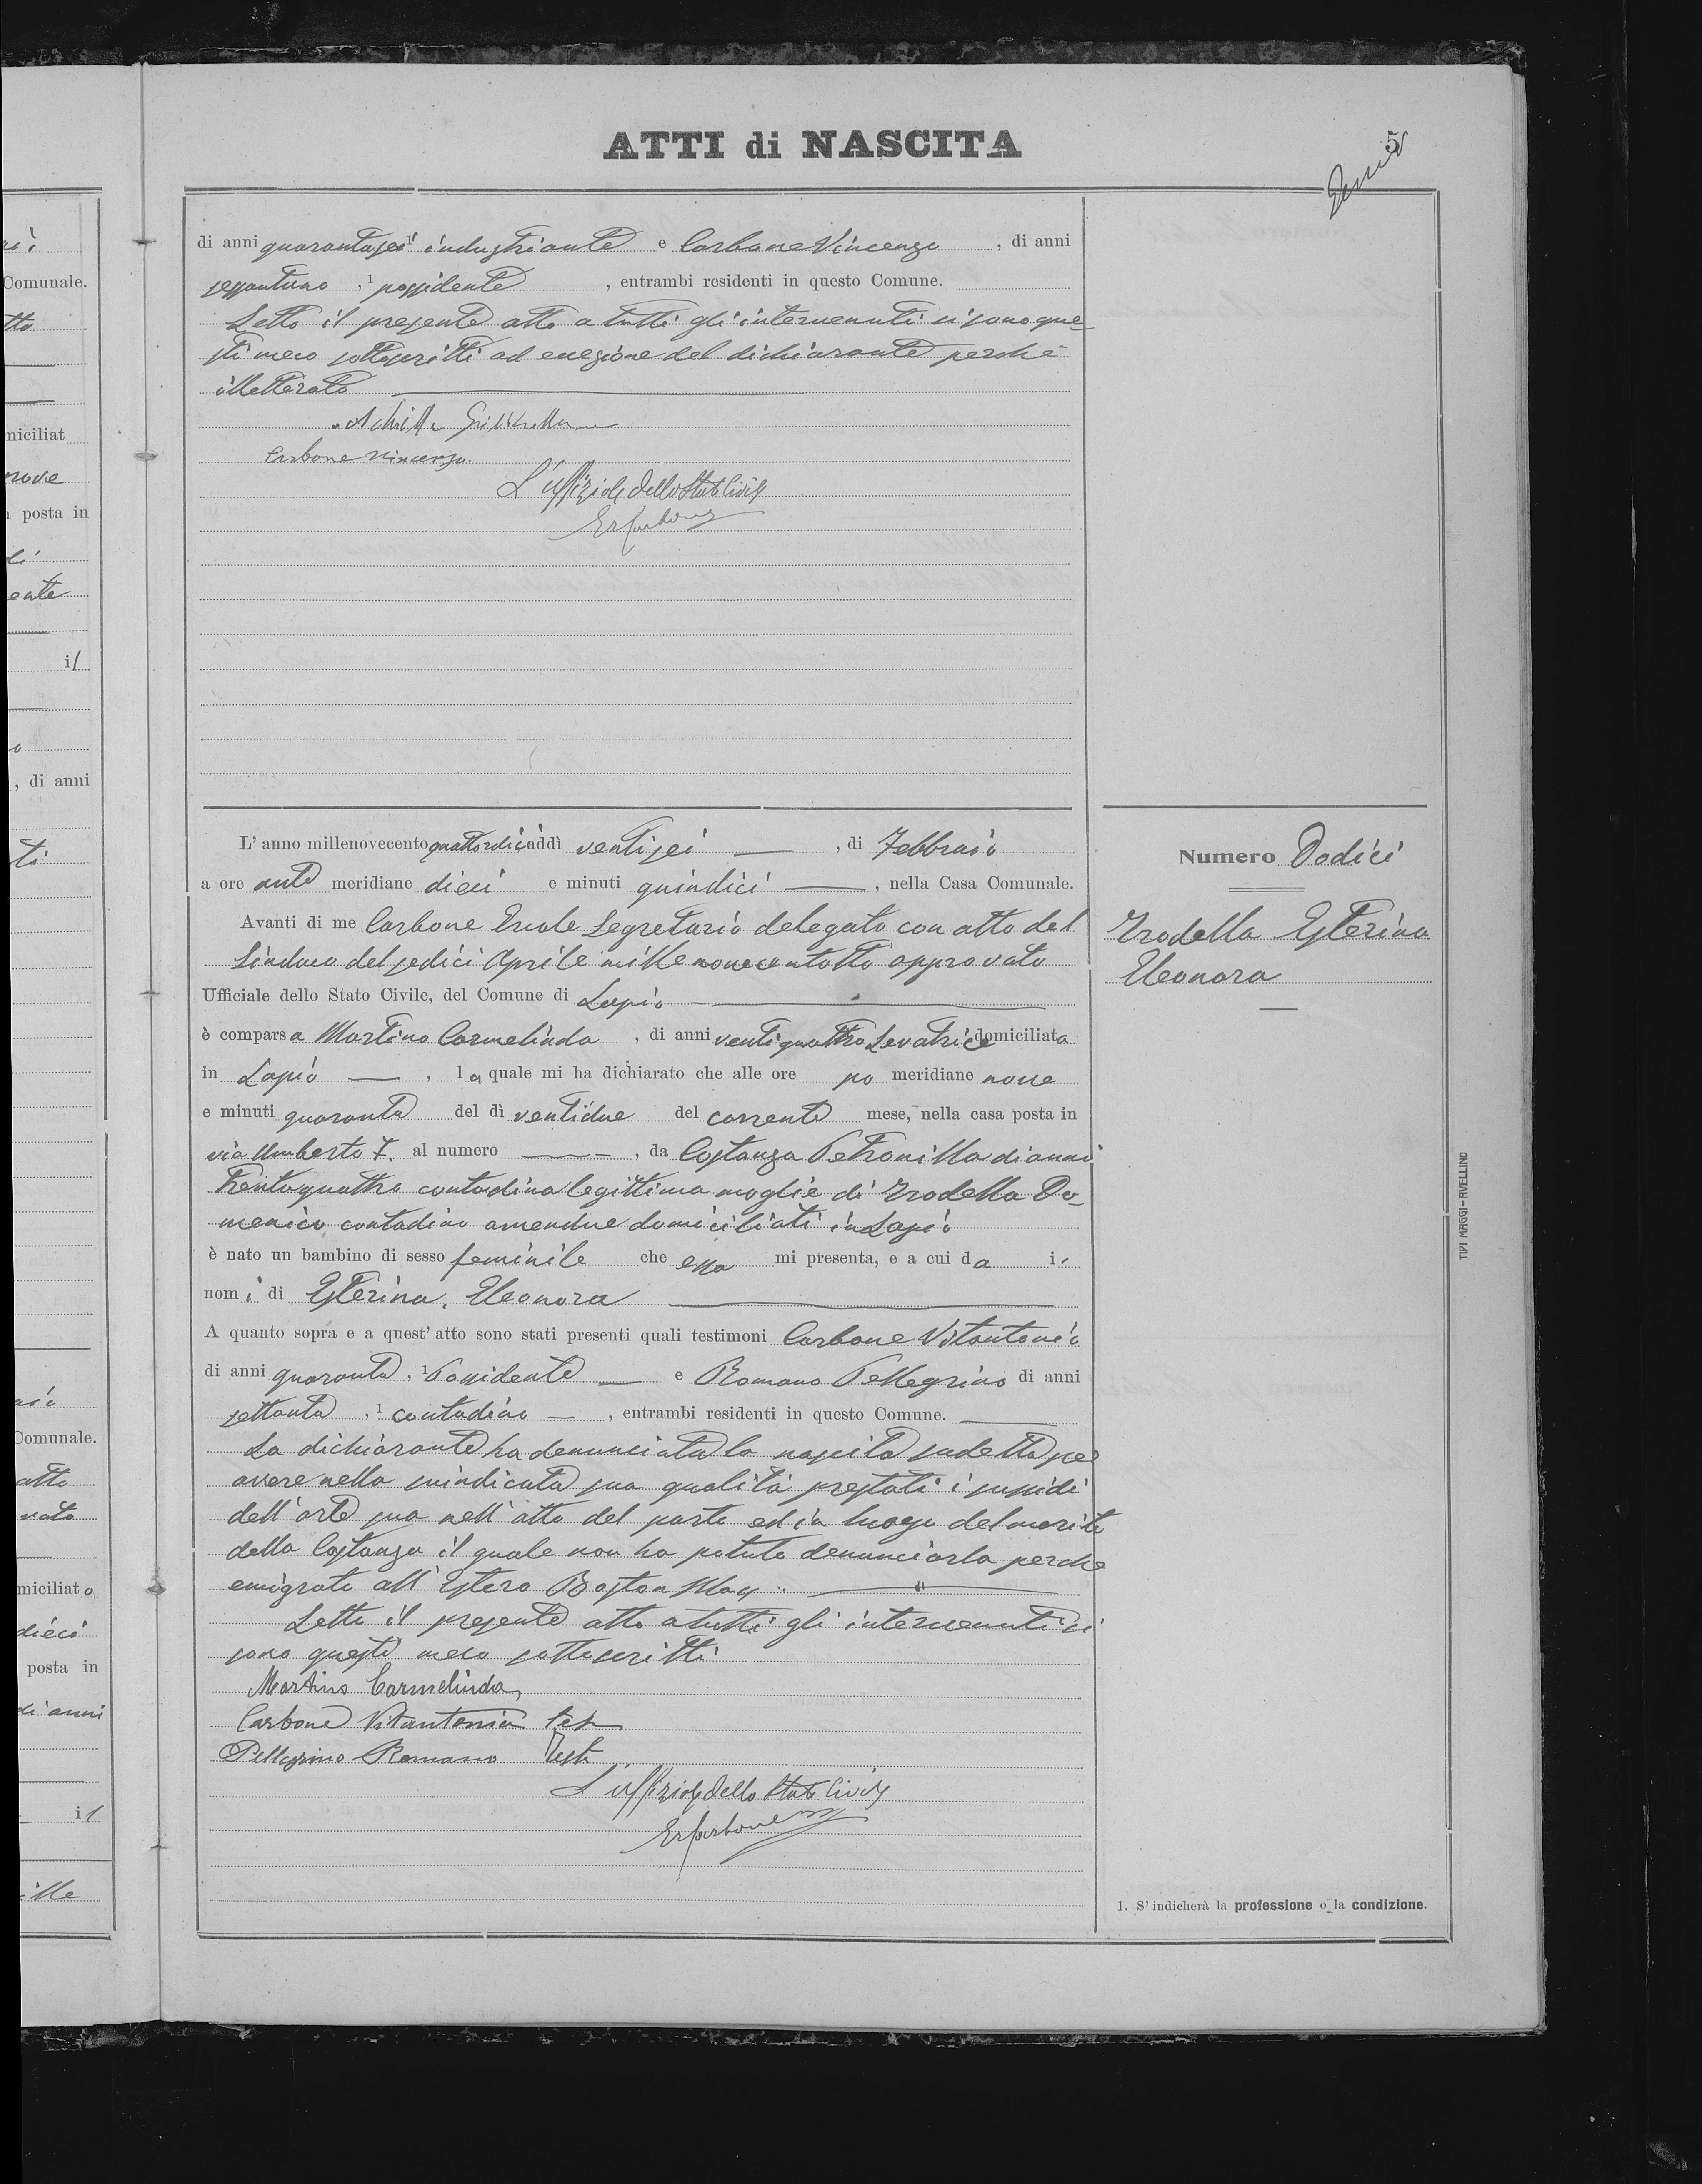 ATTI di NASCITA
5
di anni quarantasei industriante e Carbone Vincenzo, di anni
sessantuno, ¹ possidente, entrambi residenti in questo Comune.
Letto il presente atto a tutti gli intervenuti si sono que=
sti meco sottoscritti ad eccezione del dichiarante perchè
illetterato
Achille
Carbone Vincenzo
L'uffiziale dello Stato Civile
Er Carbone
L'anno millenovecentoquattordici addì ventisei, di Febbraio
a ore ante meridiane dieci e minuti quindici, nella Casa Comunale.
Avanti di me Carbone Ercole Segretario delegato con atto del
Sindaco del sedici Aprile millenovecentotto approvato
Ufficiale dello Stato Civile, del Comune di Lapio
è comparsa Martino Carmelinda, di anni ventiquattro Levatrice domiciliata
in Lapio, la quale mi ha dichiarato che alle ore po meridiane nove
e minuti quaranta del dì ventidue del corrente mese, nella casa posta in
via Umberto I. al numero, da Costanza Petronilla di anni
trentaquattro contadina legittima moglie di Trodella Do=
menico contadino amendue domiciliati in Lapio
è nato un bambino di sesso feminile che essa mi presenta, e a cui da i
nomi di Esterina, Eleonora
A quanto sopra e a quest'atto sono stati presenti quali testimoni Carbone Vitantonio
di anni quaranta, ¹ Possidente e Romano Pellegrino di anni
settanta, ¹ contadino, entrambi residenti in questo Comune.
La dichiarante ha denunciata la nascita sudetta per
avere nella suindicata sua qualità prestati i sussidi
dell'arte sua nell'atto del parto ed in luogo del marito
della Costanza il quale non ha potuto denunciarla perche
emigrato all'Estero Boston Mas
Letto il presente atto a tutti gli intervenuti si
sono questi meco sottoscritti
Martino Carmelinda
Carbone Vitantonio tes
Pellegrino Romano Test
L'uffiziale dello Stato Civile
Er Carbone
Numero Dodici
Trodella Esterina
Eleonora
1. S'indicherà la professione o la condizione.
TIPI MAGGI-AVELLINO
Comunale.
miciliat
nove
posta in
di
ente
il
, di anni
ti
Comunale.
atto
miciliato
dieci
posta in
di anni
il
ille